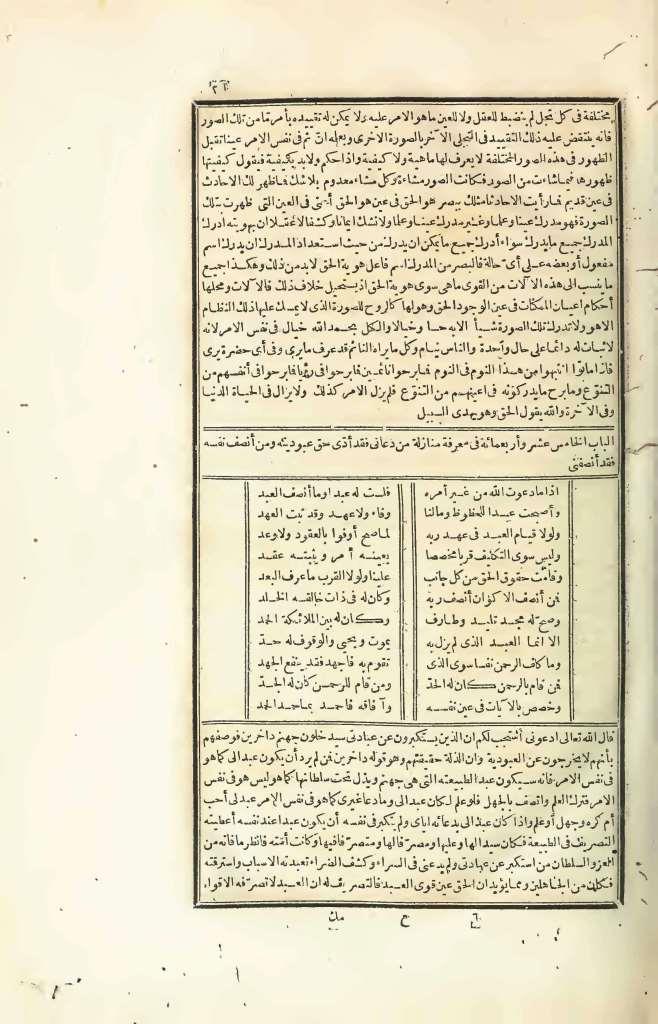 ٢٦
مختلفة فى كل تجل لم ينضبط للعقل ولا للعين ما هو الامر عليه ولا يمكن له تقييده بأمر ما من تلك الصور
فانه ينتقض عليه ذلك التقييد فى التجلى الآخر بالصورة الاخرى ويعلم انّ ثم فى نفس الامر عينا تقبل
الظهور فى هذه الصور المختلفة لا يعرف لها ماهية ولا كيفية واذا حكم ولا بد بكيفية فيقول كيفيتها
ظهورها فيما شاءت من الصور فكانت الصور مشاءة وكل مشاء معدوم بلا شك فما ظهر لك الا حادث
فى عين قديم فما رأيت الا حادثا مثلك ببصر هو الحق فى عين هو الحق أعنى فى العين التى ظهرت بتلك
الصورة فهو مدرك عينا وعلما وغير مدرك عينا وعلما ولا نشك ايمانا وكشفا لا عقلا ان بهويته أدرك
المدرك جميع ما يدرك سواء أدرك جميع ما يمكن ان يدرك من حيث استعداد المدرك ان يدرك اسم
مفعول أو بعضه على أى حالة فالبصر من المدرك اسم فاعل هوية الحق لا بد من ذلك وهكذا جميع
ما ينسب الى هذه الآلات من القوى ما هى سوى هوية الحق اذ يستحيل خلاف ذلك فالآلات ومحلها
أحكام اعيان الممكنات فى عين الوجود الحق وهو لها كالروح للصورة الذى لا يمسك عليها ذلك النظام
الا هو ولا تدرك تلك الصورة شيأ الا به حسا وخيالا والكل بحمد الله خيال فى نفس الامر لانه
لا ثبات له دائما على حال واحدة والناس نيام وكل ما يراه النائم قد عرف ما يرى وفى أى حضرة يرى
فاذا ماتوا انتبهوا من هذا النوم فى النوم فما برحوا نائمين فما برحوا فى رؤيا فما برحوا فى أنفسهم من
التنوع وما برح ما يدركونه فى اعينهم من التنوع فلم يزل الامر كذلك ولا يزال فى الحياة الدنيا
وفى الآخرة والله يقول الحق وهو يهدى السبيل
الباب الخامس عشر وأربعمائة فى معرفة منازلة من دعانى فقد أدّى حق عبوديته ومن أنصف نفسه
فقد أنصفنى
اذا ما دعوت الله من غير أمره فلست له عبدا وما أنصف العبد
وأصبحت عبدا للحظوظ وما لنا وفاء ولا عهد وقد ثبت العهد
ولولا قيام العبد فى عهد ربه لما صح أوفوا بالعقود ولا وعد
وليس سوى التكليف قربا مخصصا يعينه أمر ويثبته عقد
وقامت حقوق الحق من كل جانب علينا ولولا القرب ما عرف البعد
فمن أنصف الاكوان أنصف ربه وكان له فى ذات خالقه الخلد
وصح له مجد تليد وطارف وكان له بين الملائكة الحمد
الا انما العبد الذى لم يزل به يموت ويحيى والوقوف له حدّ
وما كلف الرحمن نفسا سوى الذى تقوم به فاجهد فقد ينفع الجهد
فمن قام بالرحمن كان له الحدّ ومن قام للرحمن كان له الجدّ
وخصص بالآيات فى عين نفسه وآفاقه فاحمد بما حمد الحمد
قال الله تعالى ادعونى أستجب لكم ان الذين يستكبرون عن عبادتى سيدخلون جهنم داخرين فوصفهم
بأنهم لا يخرجون عن العبودية وان الذلة حقيقتهم وهو قوله داخرين فمن لم يرد أن يكون عبدا لى كما هو
فى نفس الامر فانه سيكون عبد الطبيعته التى هى جهنم ويذل تحت سلطانها كما هو ليس هو فى نفس
الامر فترك العلم واتصف بالجهل فلو علم لكان عبدا لى وما دعا غيرى كما هو فى نفس الامر عبد لى أحب
أم كره وجهل أو علم واذا كان عبدا لى بدعائه اياى ولم يتكبر فى نفسه أن يكون عبدا عند نفسه أعطيته
التصريف فى الطبيعة فكان سيدا لها وعليها ومصرّفا لها ومتصرّفا فيها وكانت أمته فانظر ما فاته من
العز والسلطان من استكبر عن عبادتى ولم يدعنى فى السراء وكشف الضراء تعبدته الاسباب واسترقته
فكان من الجاهلين ومما يؤيد ان الحق عين قوى العبد فالتصريف له ان العبد لا تصرفه الا قواه
مك ح